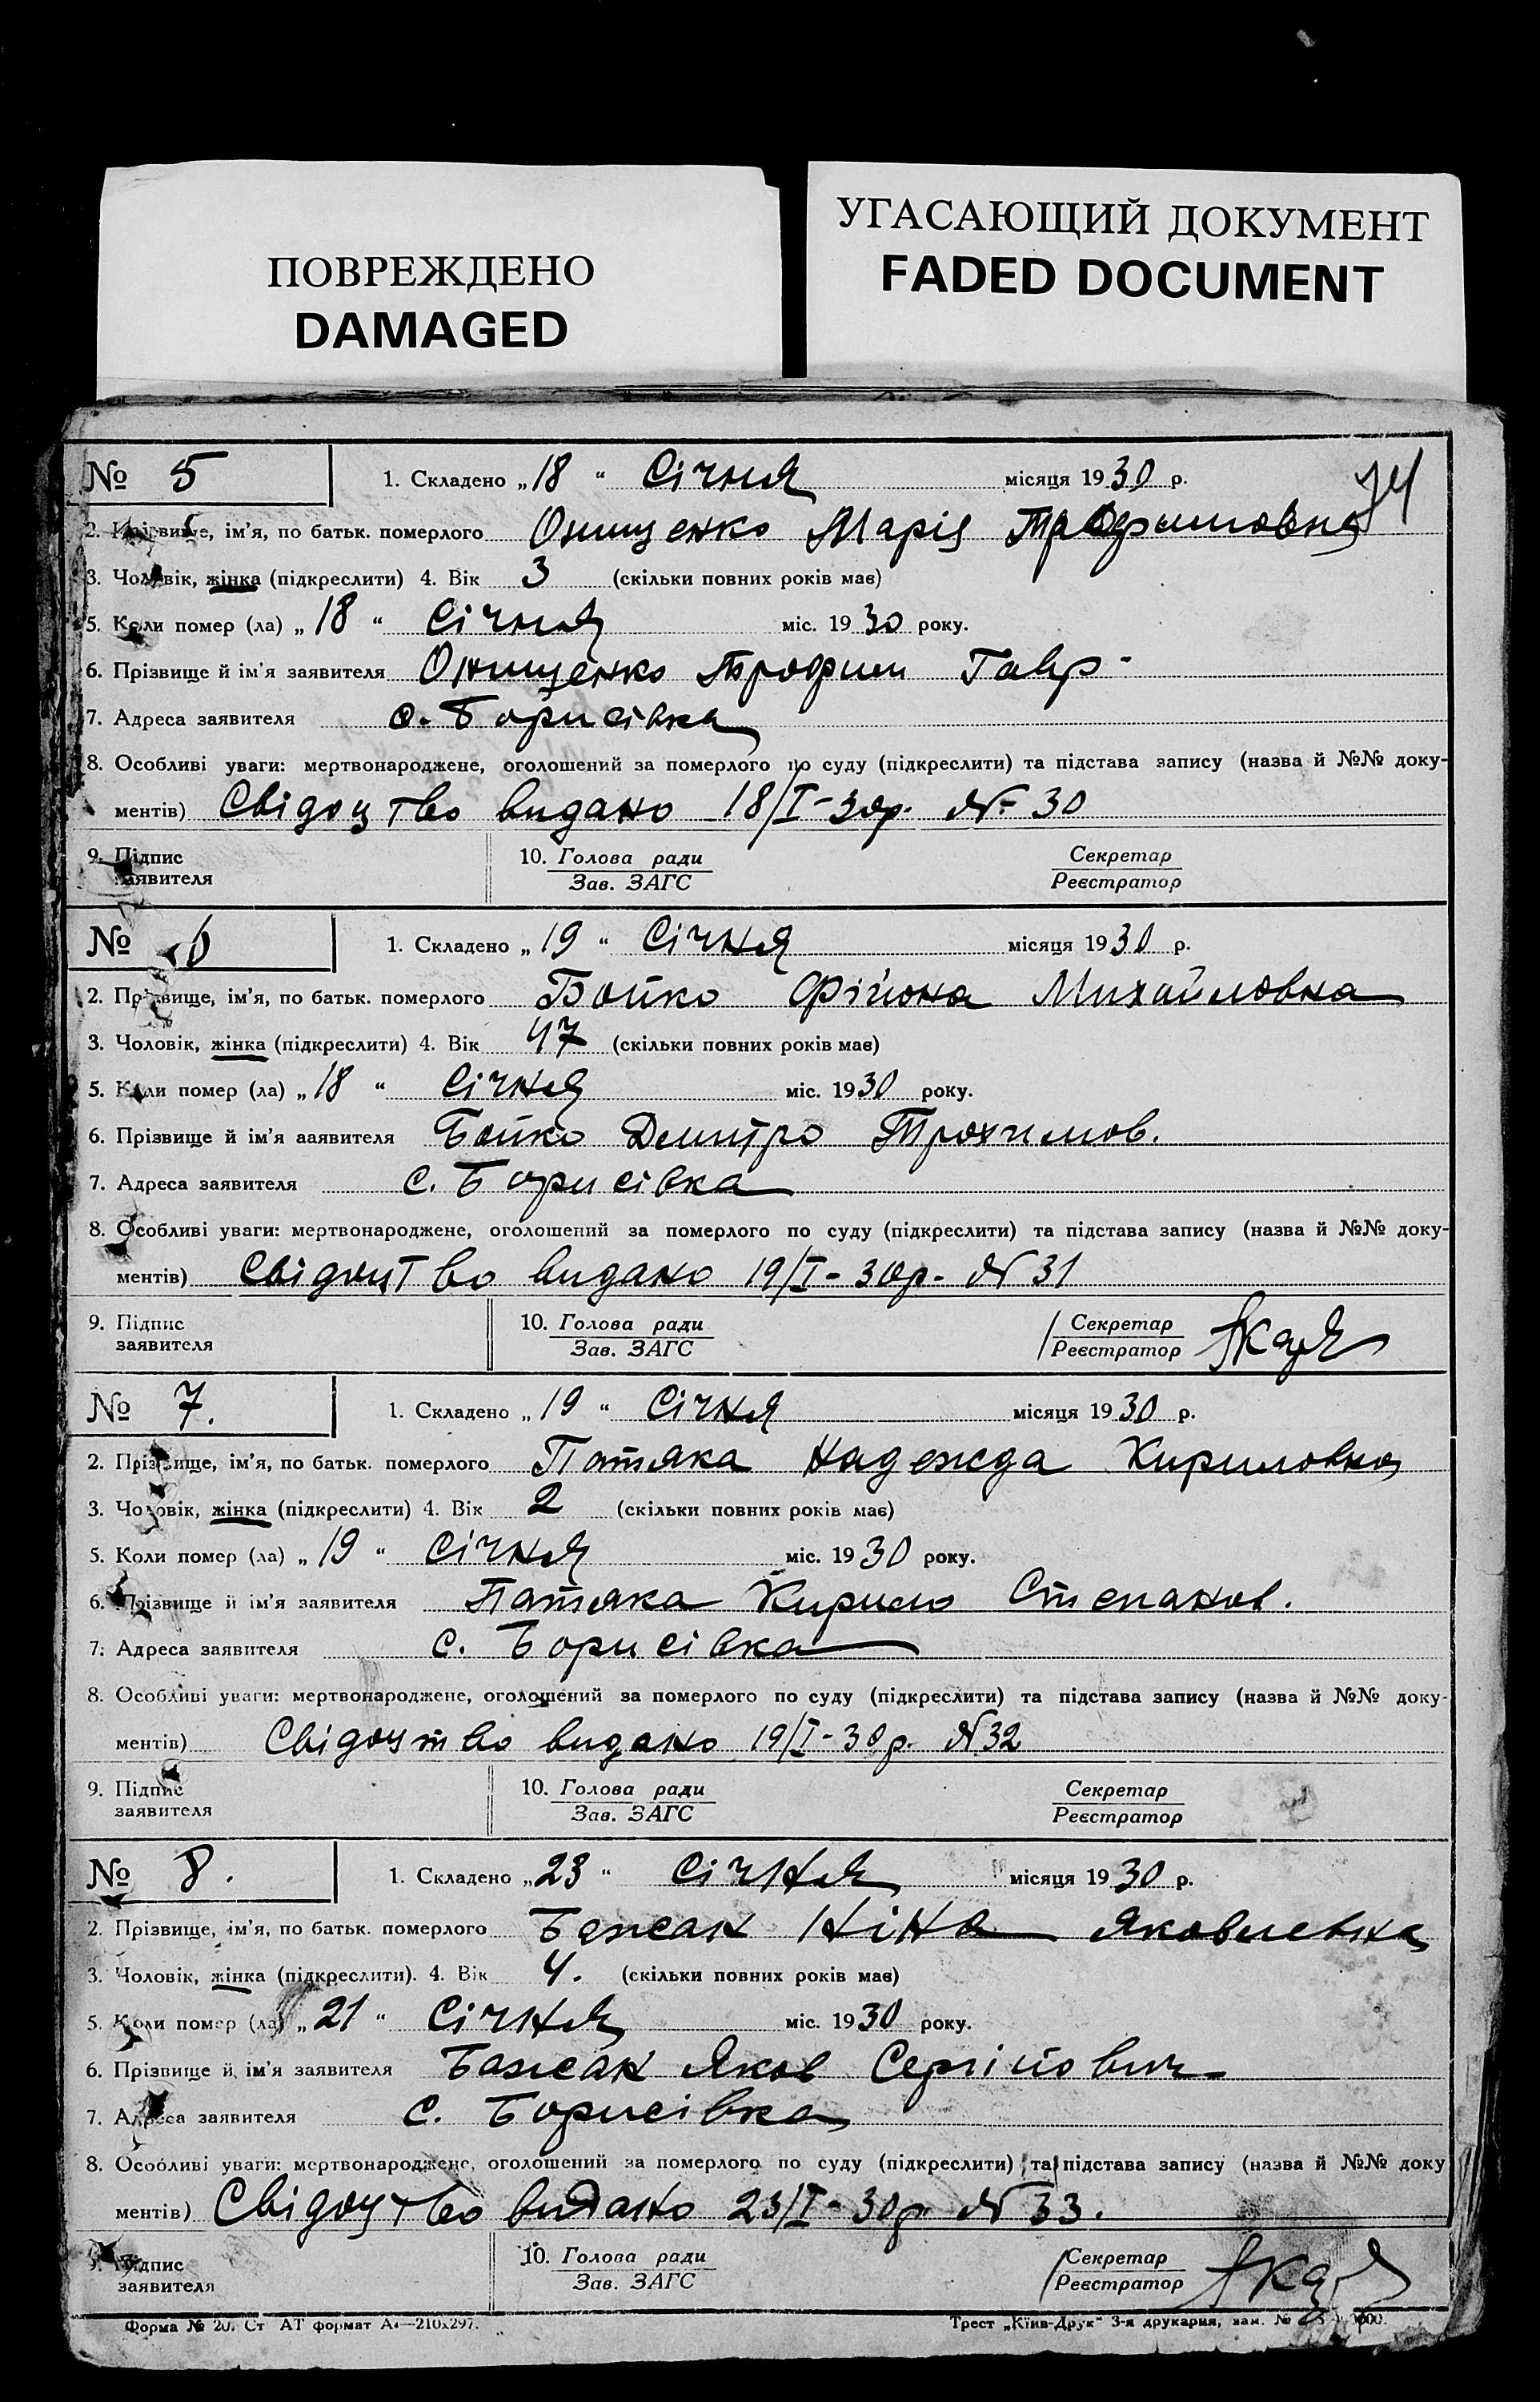 ПОВРЕЖДЕНО
DAMAGED
УГАСАЮЩИЙ ДОКУМЕНТ
FADED DOCUMENT
74
№ 5 1. Складено „18“ Січня місяця 1930 р.
2. Прізвище, ім'я, по батьк. померлого Онищенко Марія Трофимовна
3. Чоловік, жінка (підкреслити) 4. Вік 3 (скільки повних років має)
5. Коли помер (ла) „18“ Січня міс. 1930 року.
6. Прізвище й ім'я заявителя Онищенко Трофим Гавр-
7. Адреса заявителя с. Борисівка
8. Особливі уваги: мертвонароджене, оголошений за померлого по суду (підкреслити) та підстава запису (назва й №№ доку-
ментів) Свідоцтво видано 18/I-30р. № 30
9. Підпис заявителя 10. Голова ради Зав. ЗАГС Секретар Реєстратор
№ 6 1. Складено „19“ Січня місяця 1930 р.
2. Прізвище, ім'я, по батьк. померлого Бойко Фійона Михайловна
3. Чоловік, жінка (підкреслити) 4. Вік 47 (скільки повних років має)
5. Коли помер (ла) „18“ Січня міс. 1930 року.
6. Прізвище й ім'я заявителя Бойко Дмитро Трохимов.
7. Адреса заявителя с. Борисівка
8. Особливі уваги: мертвонароджене, оголошений за померлого по суду (підкреслити) та підстава запису (назва й №№ доку-
ментів) Свідоцтво видано 19/I-30р. № 31
9. Підпис заявителя 10. Голова ради Зав. ЗАГС Секретар Реєстратор
№ 7. 1. Складено „19“ Січня місяця 1930 р.
2. Прізвище, ім'я, по батьк. померлого Патяка Надежда Кириловна
3. Чоловік, жінка (підкреслити) 4. Вік 2 (скільки повних років має)
5. Коли помер (ла) „19“ Січня міс. 1930 року.
6. Прізвище й ім'я заявителя Патяка Кирило Степанов.
7. Адреса заявителя с. Борисівка
8. Особливі уваги: мертвонароджене, оголошений за померлого по суду (підкреслити) та підстава запису (назва й №№ доку-
ментів) Свідоцтво видано 19/I-30р. № 32
9. Підпис заявителя 10. Голова ради Зав. ЗАГС Секретар Реєстратор
№ 8. 1. Складено „23“ Січня місяця 1930 р.
2. Прізвище, ім'я, по батьк. померлого Бажан Ніна Яковлевна
3. Чоловік, жінка (підкреслити). 4. Вік 4. (скільки повних років має)
5. Коли помер (ла) „21“ Січня міс. 1930 року.
6. Прізвище й ім'я заявителя Бажан Яков Сергійович
7. Адреса заявителя с. Борисівка
8. Особливі уваги: мертвонароджене, оголошений за померлого по суду (підкреслити) та підстава запису (назва й №№ доку
ментів) Свідоцтво видано 23/I-30р № 33.
9. Підпис заявителя 10. Голова ради Зав. ЗАГС Секретар Реєстратор
Форма № 20. Ст АТ формат А4—210х297. Трест „Київ-Друк“ 3-я друкарня, зам. №